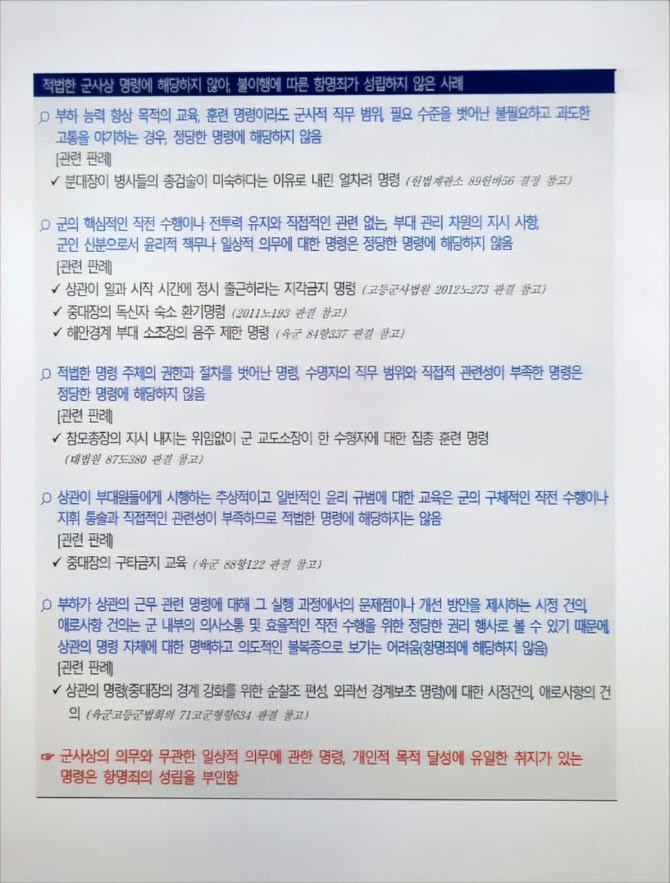 적법한 군사상 명령에 해당하지 않아, 불이행에 따른 항명죄가 성립하지 않은 사례
부하 능력 향상 목적의 교육, 훈련 명령이라도 군사적 직무 범위, 필요 수준을 벗어난 불필요하고 과도한
고통을 야기하는 경우, 정당한 명령에 해당하지 않음
[관련 판례]
✓ 분대장이 병사들의 총검술이 미숙하다는 이유로 내린 얼차려 명령 (헌법재판소 89헌바56 결정 참고)
군의 핵심적인 작전 수행이나 전투력 유지와 직접적인 관련 없는, 부대 관리 차원의 지시 사항,
군인 신분으로서 윤리적 책무나 일상적 의무에 대한 명령은 정당한 명령에 해당하지 않음
[관련 판례]
✓ 상관이 일과 시작 시간에 정시 출근하라는 지각금지 명령 (고등군사법원 2012노273 판결 참고)
✓ 중대장의 독신자 숙소 환기명령 (2011노193 판결 참고)
✓ 해안경계 부대 소초장의 음주 제한 명령 (육군 84항337 판결 참고)
적법한 명령 주체의 권한과 절차를 벗어난 명령, 수명자의 직무 범위와 직접적 관련성이 부족한 명령은
정당한 명령에 해당하지 않음
[관련 판례]
✓ 참모총장의 지시 내지는 위임없이 군 교도소장이 한 수형자에 대한 집총 훈련 명령
(대법원 87도380 판결 참고)
상관이 부대원들에게 시행하는 추상적이고 일반적인 윤리 규범에 대한 교육은 군의 구체적인 작전 수행이나
지휘 통솔과 직접적인 관련성이 부족하므로 적법한 명령에 해당하지는 않음
[관련 판례]
✓ 중대장의 구타금지 교육 (육군 88항122 판결 참고)
부하가 상관의 근무 관련 명령에 대해 그 실행 과정에서의 문제점이나 개선 방안을 제시하는 시정 건의,
애로사항 건의는 군 내부의 의사소통 및 효율적인 작전 수행을 위한 정당한 권리 행사로 볼 수 있기 때문에,
상관의 명령 자체에 대한 명백하고 의도적인 불복종으로 보기는 어려움(항명죄에 해당하지 않음)
[관련 판례]
✓ 상관의 명령(중대장의 경계 강화를 위한 순찰조 편성, 외곽선 경계보초 명령)에 대한 시정건의, 애로사항의 건
의 (육군고등군법회의 71고군형항634 판결 참고)
☞ 군사상의 의무와 무관한 일상적 의무에 관한 명령, 개인적 목적 달성에 유일한 취지가 있는
명령은 항명죄의 성립을 부인함